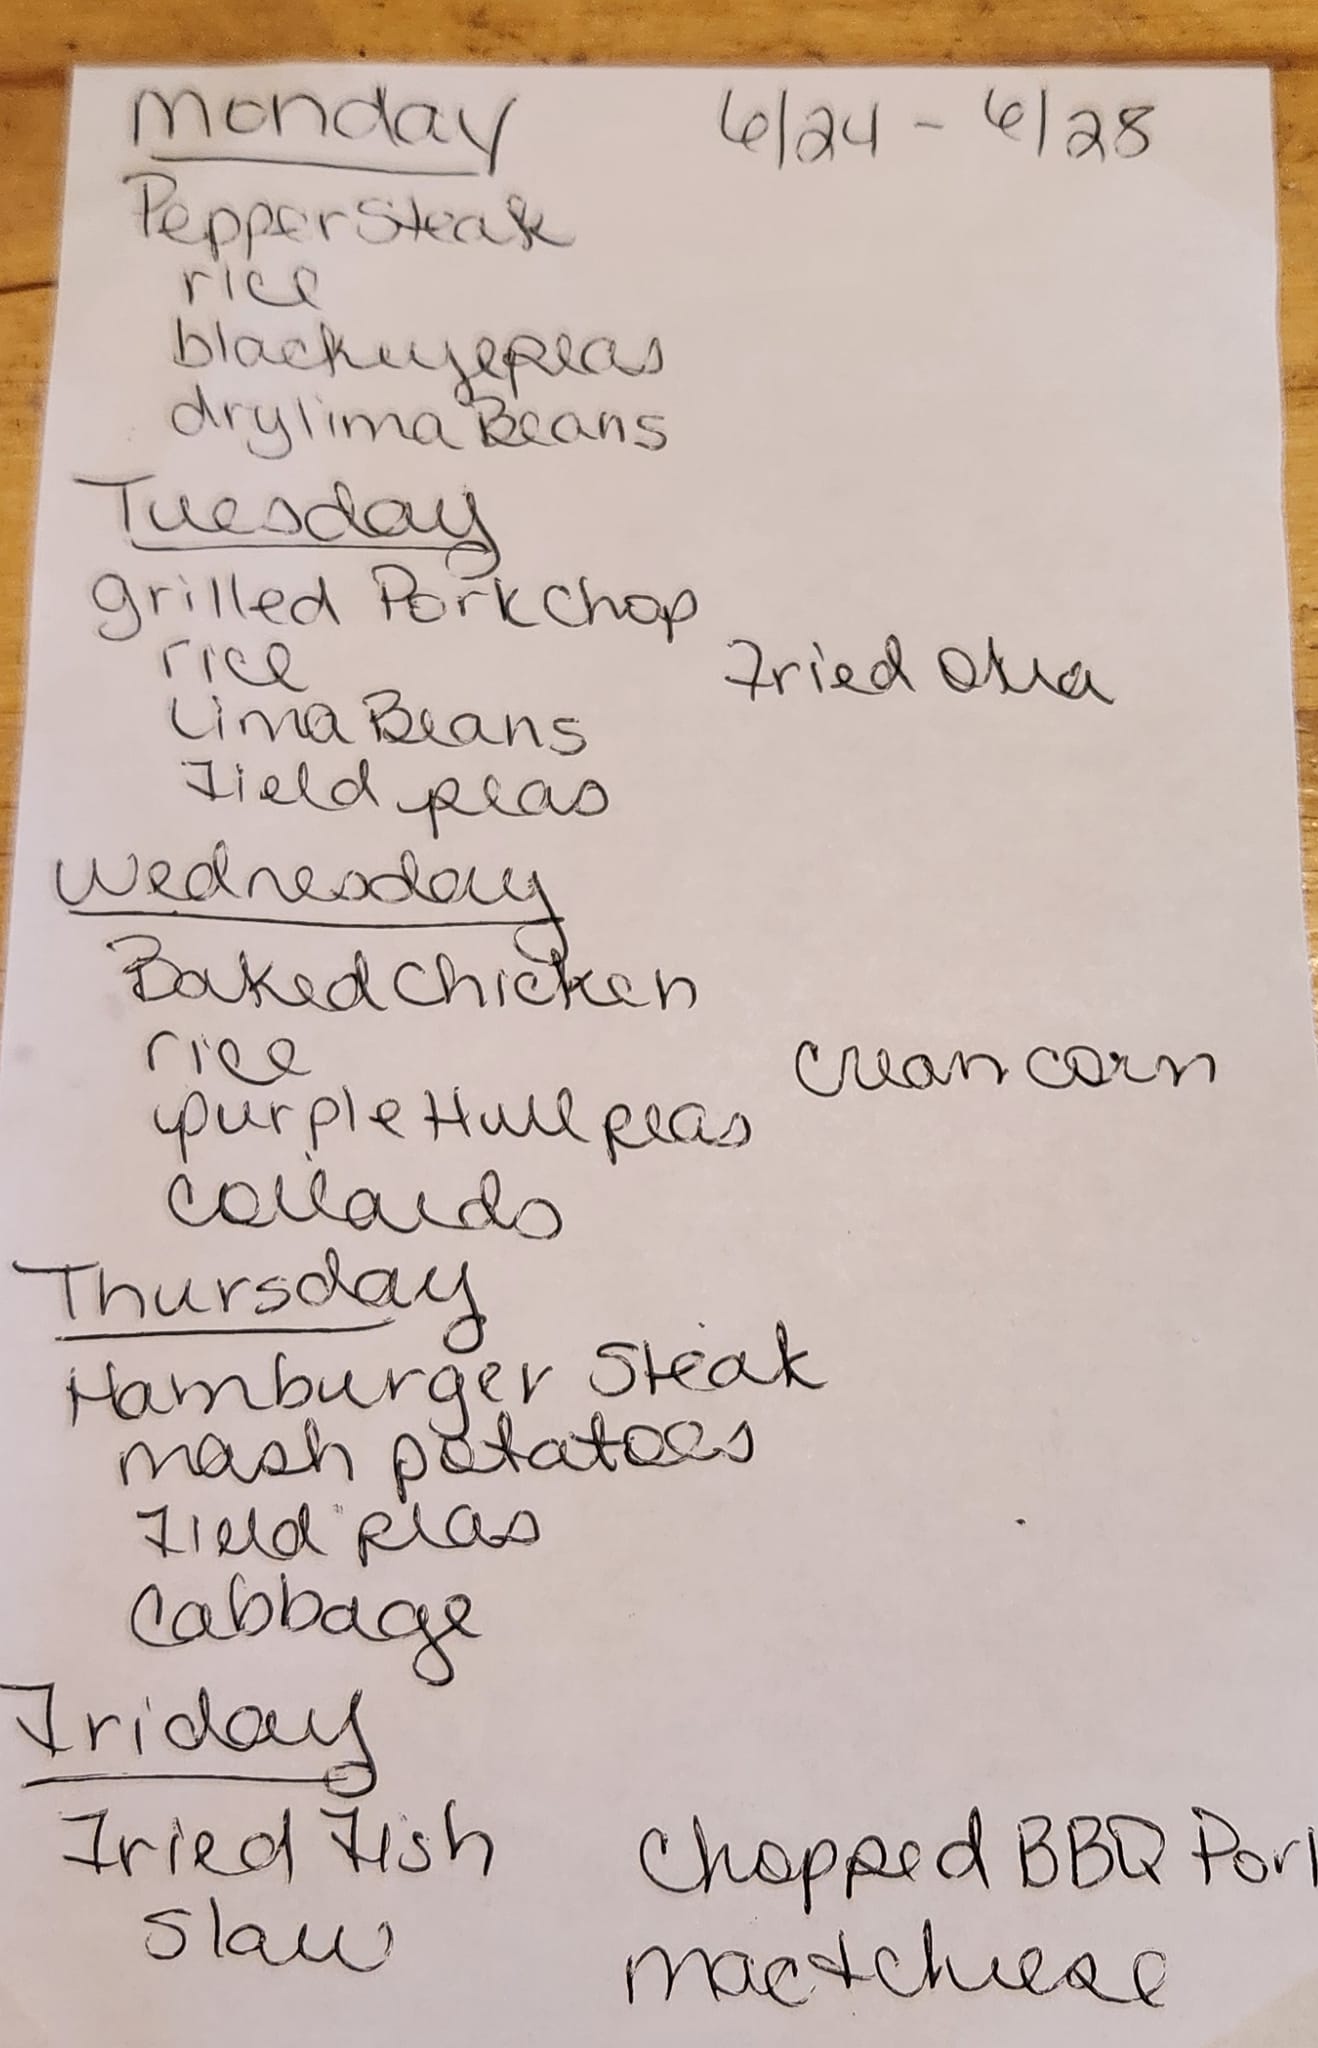 Monday 6/24 - 6/28
Pepper Steak
rice
blackeyepeas
dry lima Beans
Tuesday
grilled Pork Chop
rice Fried Okra
Lima Beans
Field peas
Wednesday
Baked Chicken
rice Cream corn
purple Hull peas
Collards
Thursday
Hamburger Steak
mash potatoes
Field peas
Cabbage
Friday
Fried Fish Chopped BBQ Pork
Slaw mac + cheese